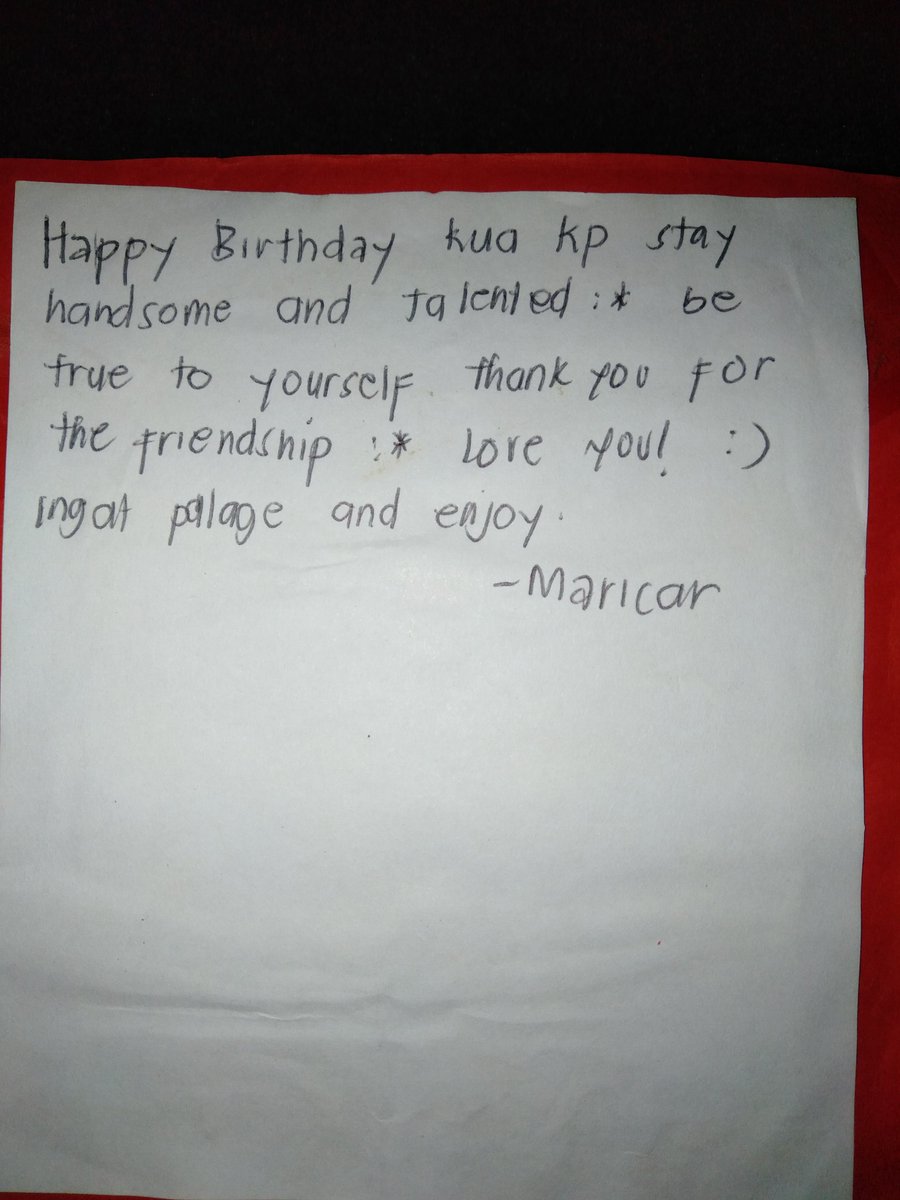 Happy Birthday kua kp stay
handsome and talented :* be
true to yourself. thank you for
the friendship :* Love you! :)
ingat palage and enjoy.
-Maricar